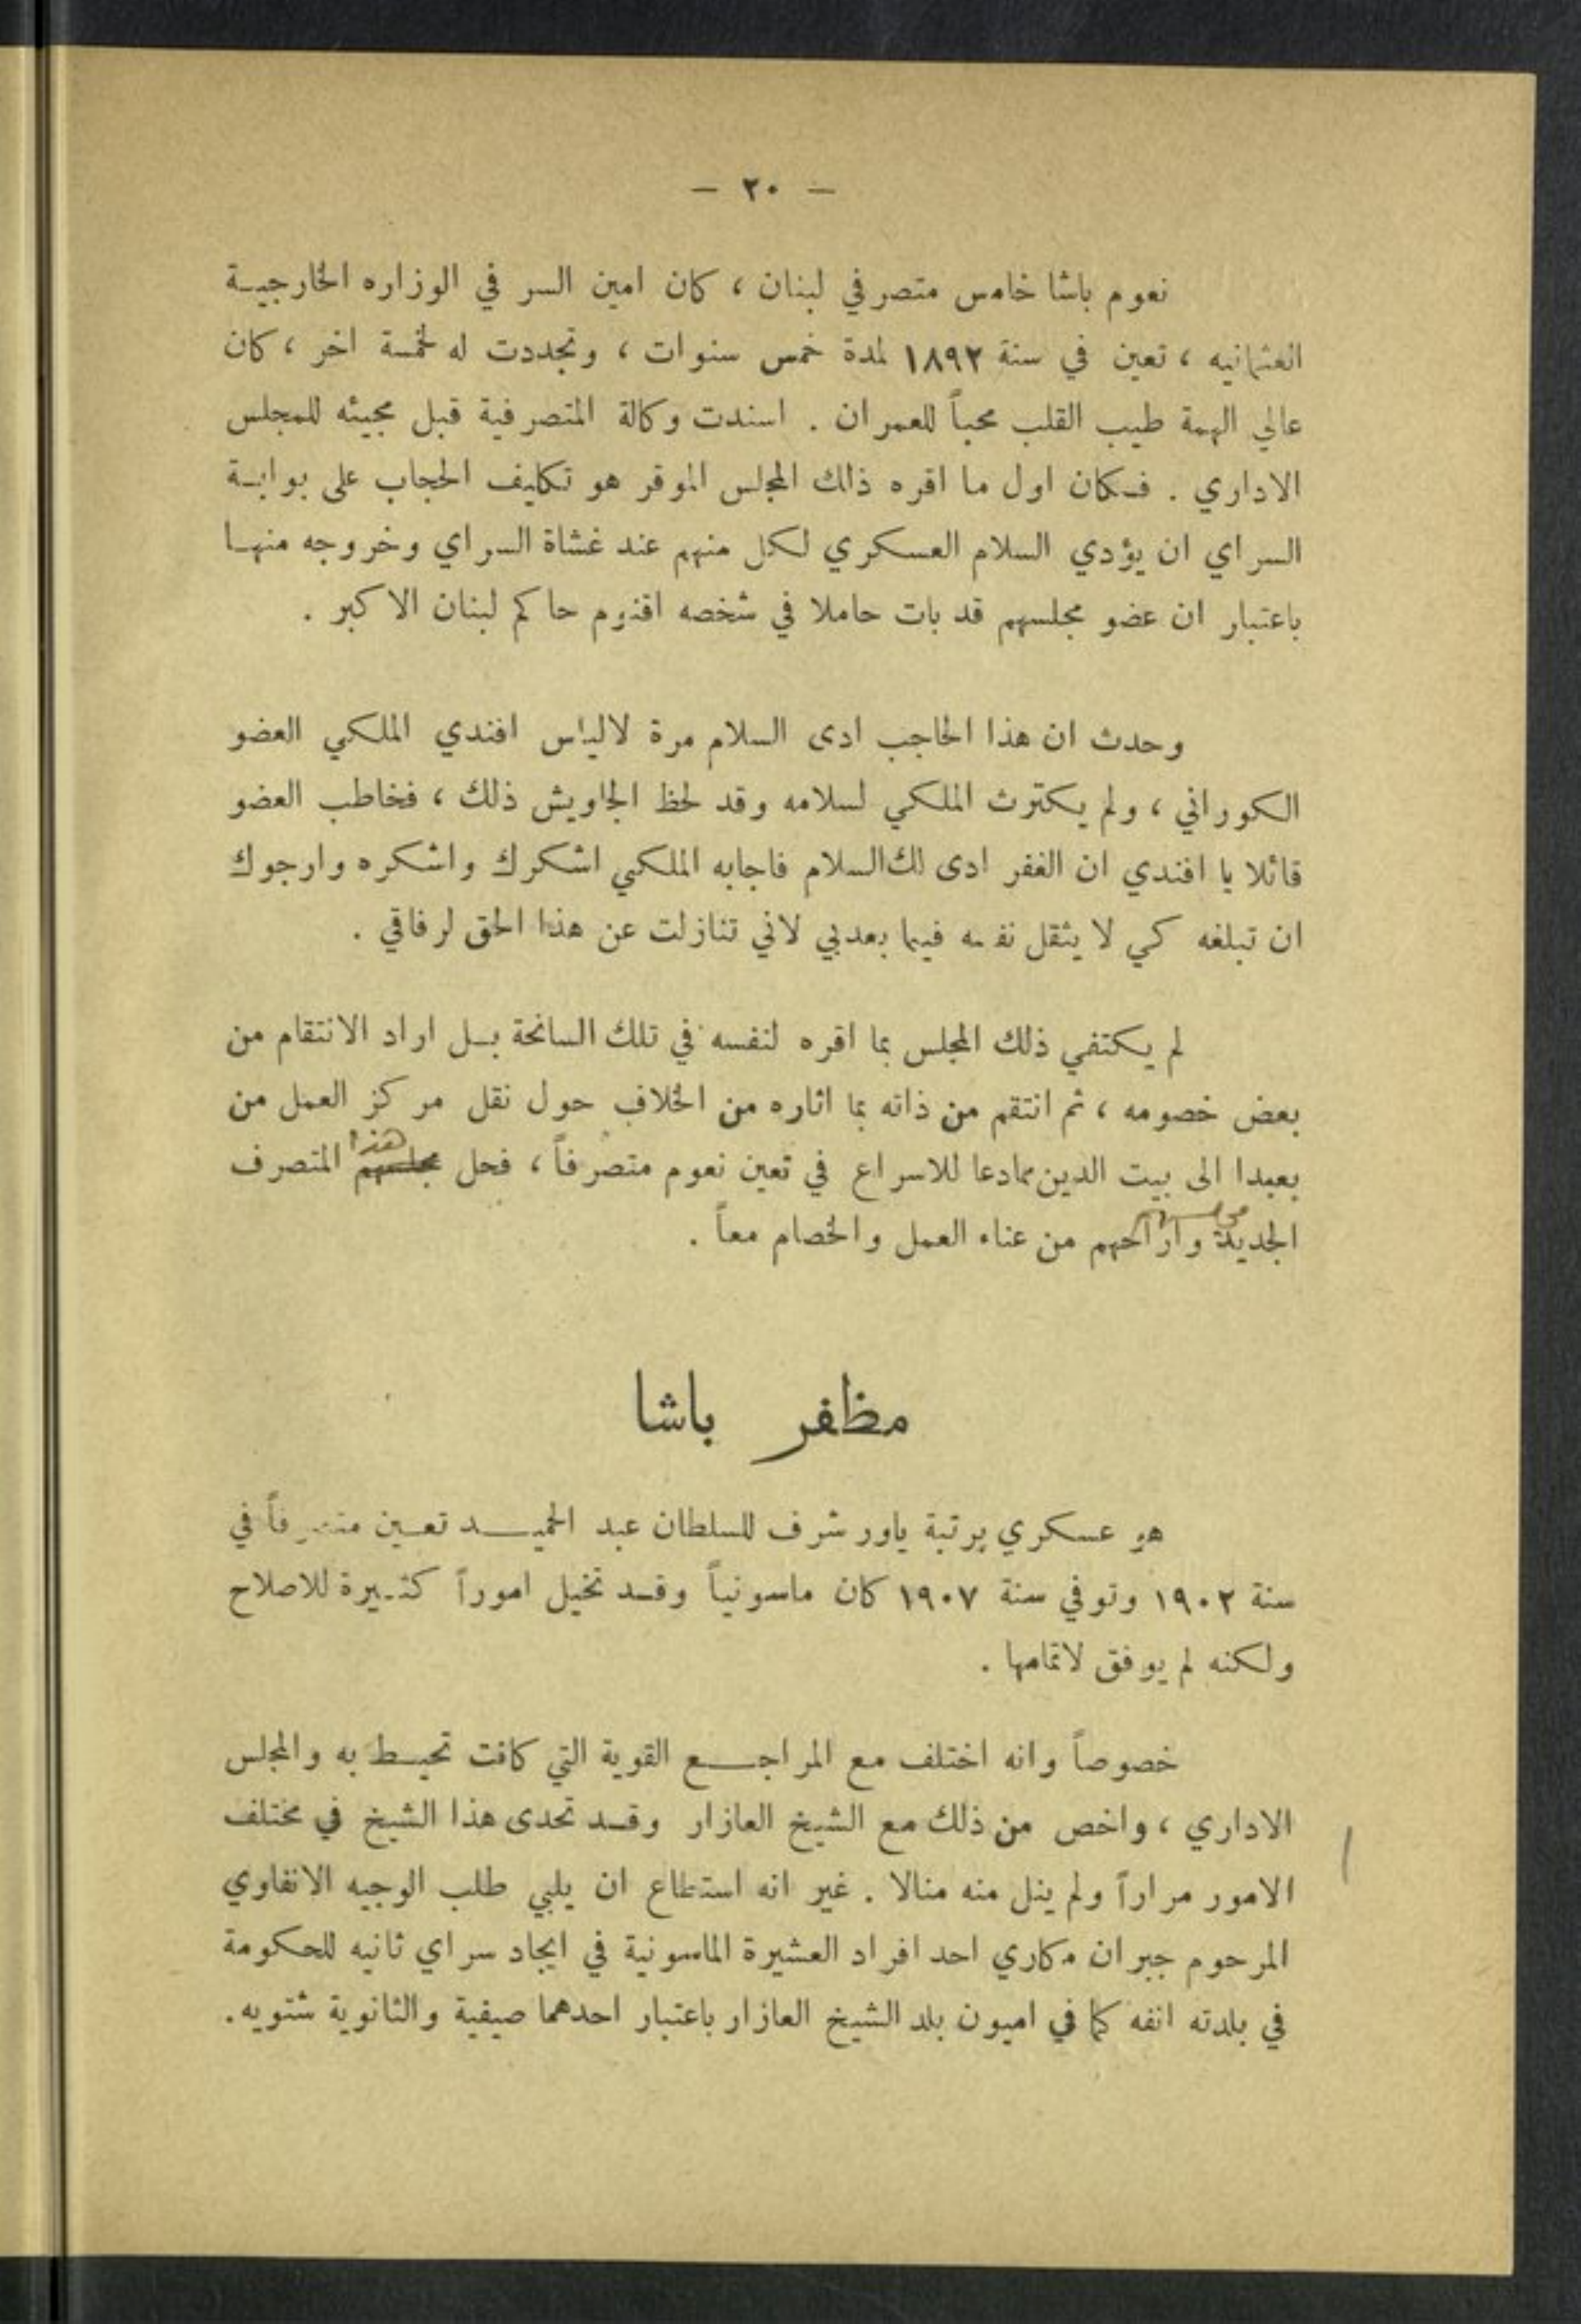 — ٢٠ —
نعوم باشا خامس متصرفي لبنان ، كان امين السر في الوزاره الخارجية
العثمانيه ، تعين في سنة ١٨٩٢ لمدة خمس سنوات ، وتجددت له لخمسة اخر ، كان
عالي الهمة طيب القلب محباً للعمران . اسندت وكالة المتصرفية قبل مجيئه للمجلس
الاداري . فكان اول ما اقره ذالك المجلس الموقر هو تكليف الحجاب على بوابة
السراي ان يؤدي السلام العسكري لكل منهم عند غشاة السراي وخروجه منها
باعتبار ان عضو مجلسهم قد بات حاملا في شخصه اقنوم حاكم لبنان الاكبر .
وحدث ان هذا الحاجب ادى السلام مرة لالياس افندي الملكي العضو
الكوراني ، ولم يكترث الملكي لسلامه وقد لحظ الجاويش ذلك ، فخاطب العضو
قائلا يا افندي ان الغفر ادى لك السلام فاجابه الملكي اشكرك واشكره وارجوك
ان تبلغه كي لا يثقل نفسه فيما بعد بي لاني تنازلت عن هذا الحق لرفاقي .
لم يكتفي ذلك المجلس بما اقره لنفسه في تلك السانحة بل اراد الانتقام من
بعض خصومه ، ثم انتقم من ذاته بما اثاره من الخلاف حول نقل مركز العمل من
بعبدا الى بيت الدين مما دعا للاسراع في تعين نعوم متصرفاً ، فحل مجلسهم هذا المتصرف
الجديد وأراحهم من عناء العمل والخصام معاً .
مظفر باشا
هو عسكري برتبة ياور شرف للسلطان عبد الحميد تعين متصرفاً في
سنة ١٩٠٢ وتوفي سنة ١٩٠٧ كان ماسونياً وقد تخيل اموراً كثيرة للاصلاح
ولكنه لم يوفق لاتمامها .
خصوصاً وانه اختلف مع المراجع القوية التي كانت تحيط به والمجلس
الاداري ، واخص من ذلك مع الشيخ العازار وقد تحدى هذا الشيخ في مختلف
الامور مراراً ولم ينل منه منالا . غير انه استطاع ان يلبي طلب الوجيه الانفاوي
المرحوم جبران مكاري احد افراد العشيرة الماسونية في ايجاد سراي ثانيه للحكومة
في بلدته انفه كما في اميون بلد الشيخ العازار باعتبار احدهما صيفية والثانوية شتويه.